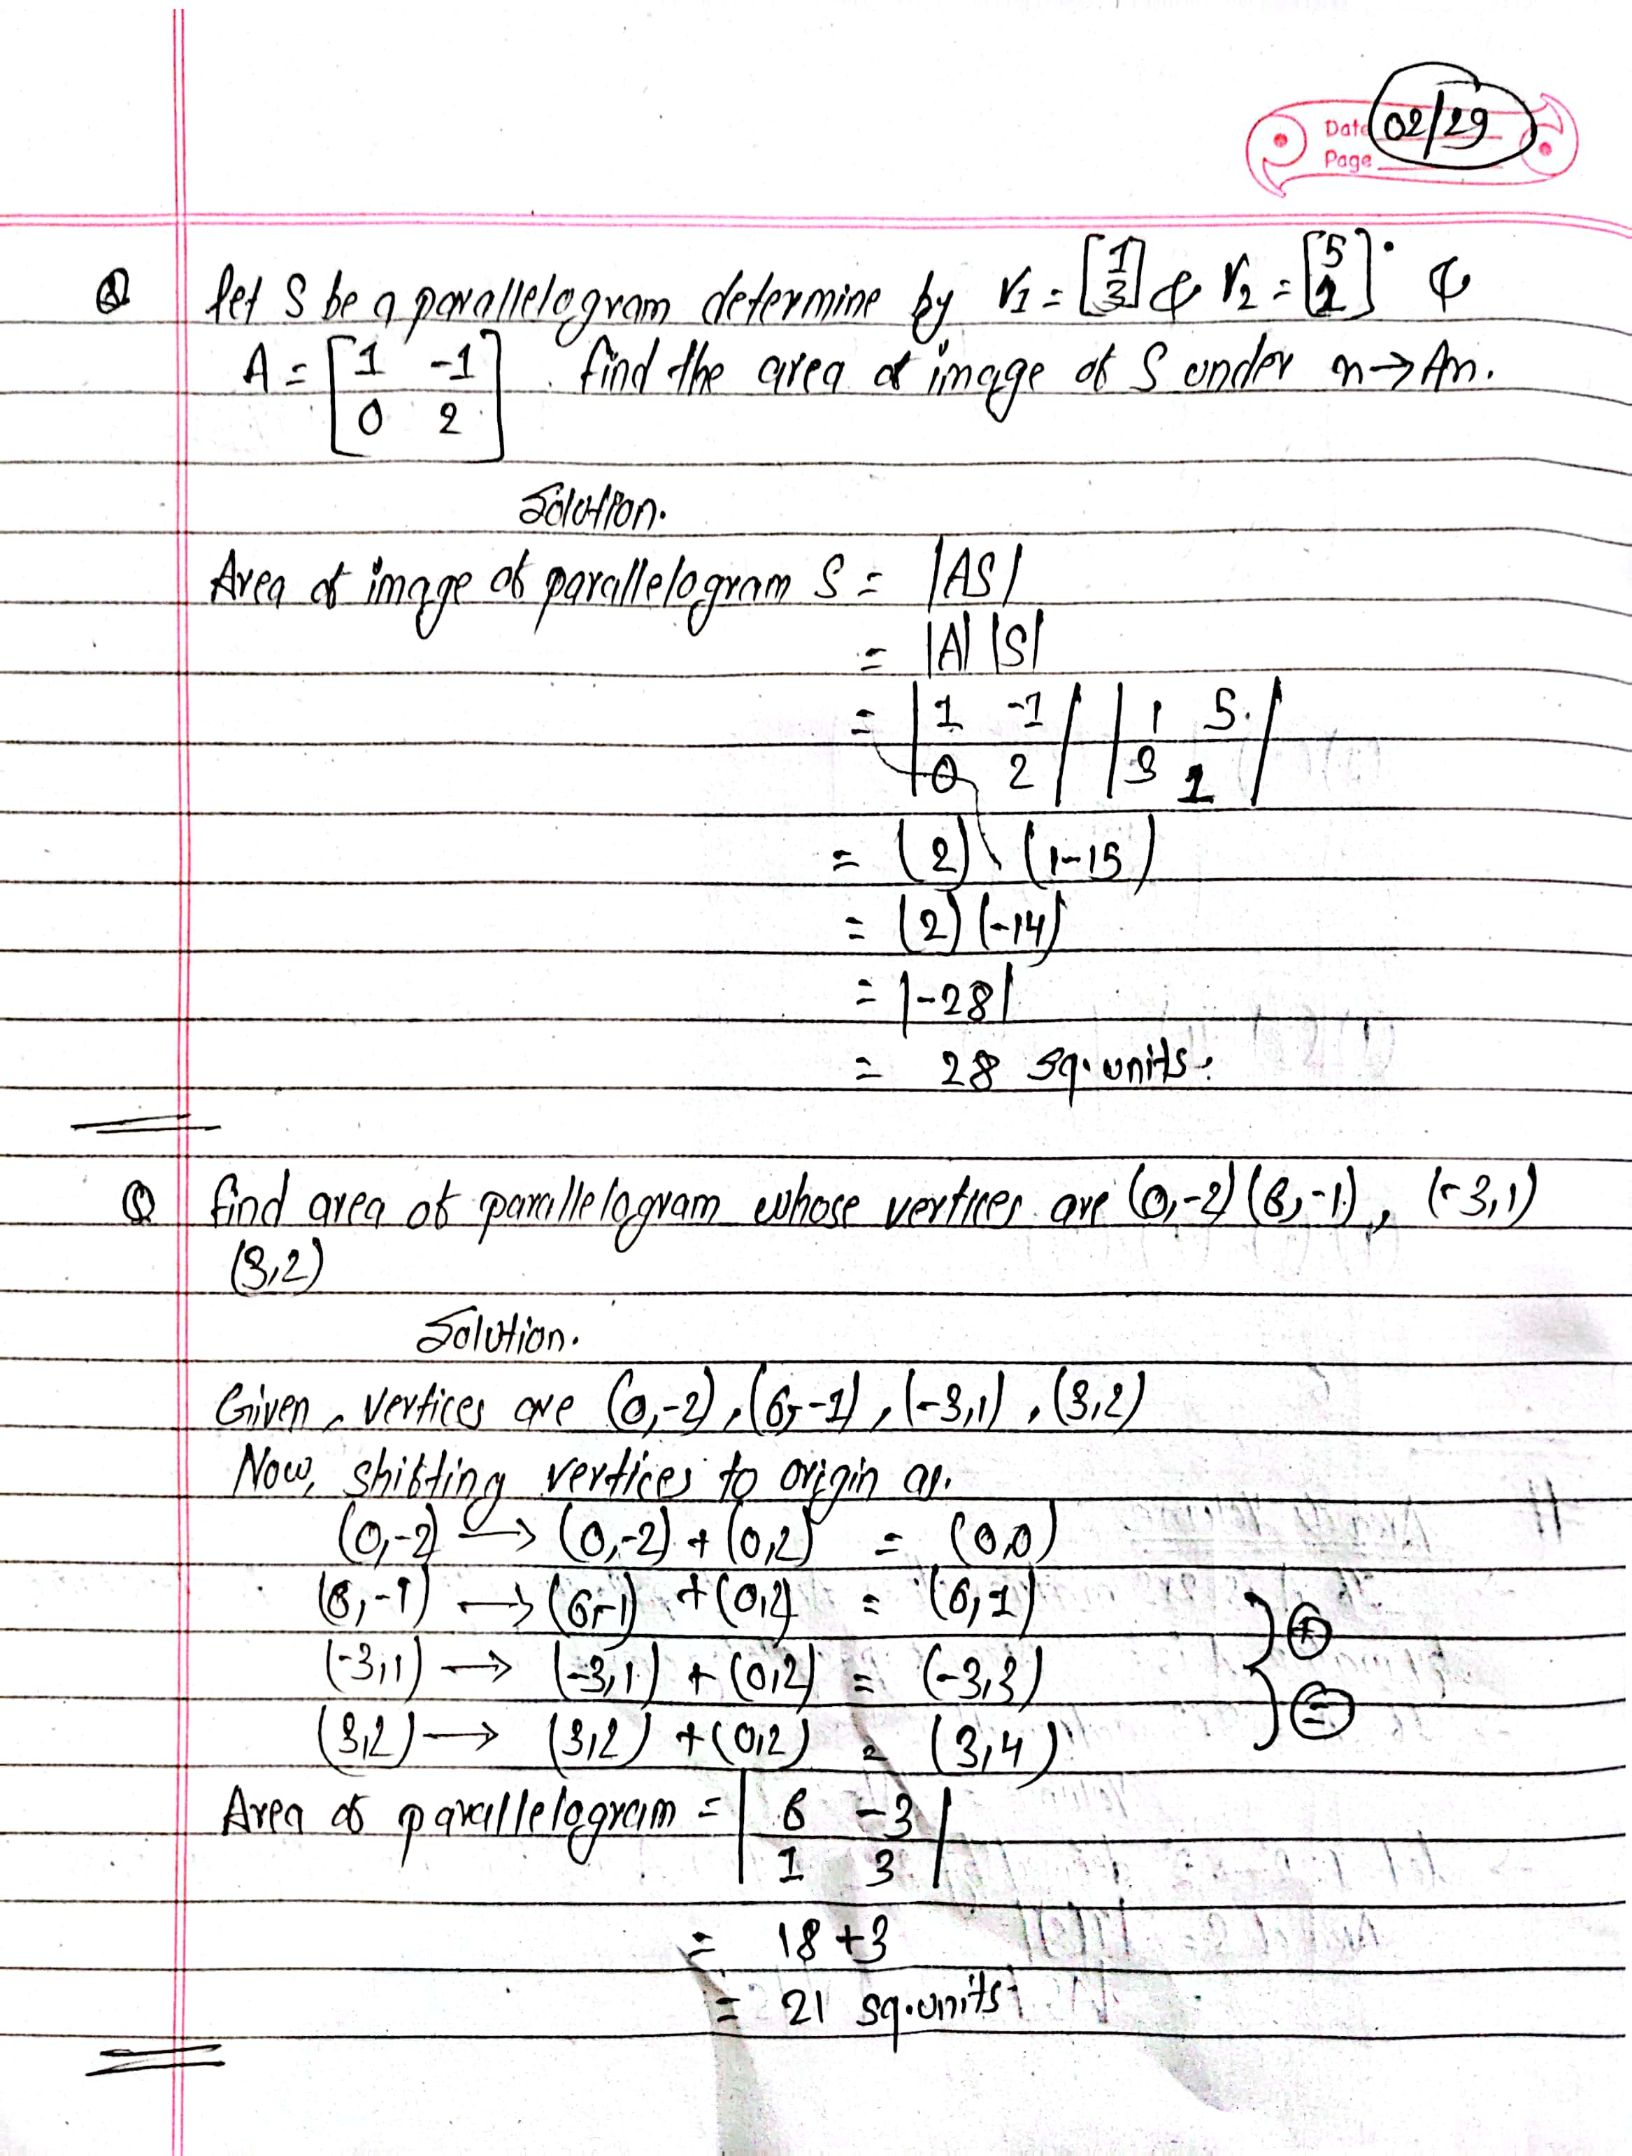 Date 02/29
Page
Q let S be a parallelogram determine by V1 = [1 3] & V2 = [5 1]. &
A = [1 -1 0 2]. find the area of image of S under x → Ax.
Solution.
Area of image of parallelogram S = |AS|
= |A| |S|
= |1 -1| |1 5.|
|0 2| |3 1|
= (2) (1-15)
= (2) (-14)
= |-28|
= 28 sq.units.
Q find area of parallelogram whose vertices are (0,-2) (6,-1), (-3,1)
(3,2)
Solution.
Given, vertices are (0,-2), (6,-1), (-3,1), (3,2)
Now, shifting vertices to origin as.
(0,-2) → (0,-2) + (0,2) = (0,0)
(6,-1) → (6,-1) + (0,2) = (6,1)
(-3,1) → (-3,1) + (0,2) = (-3,3)
(3,2) → (3,2) + (0,2) = (3,4)
} + =
Area of parallelogram = |6 -3|
|1 3|
= 18+3
= 21 sq.units